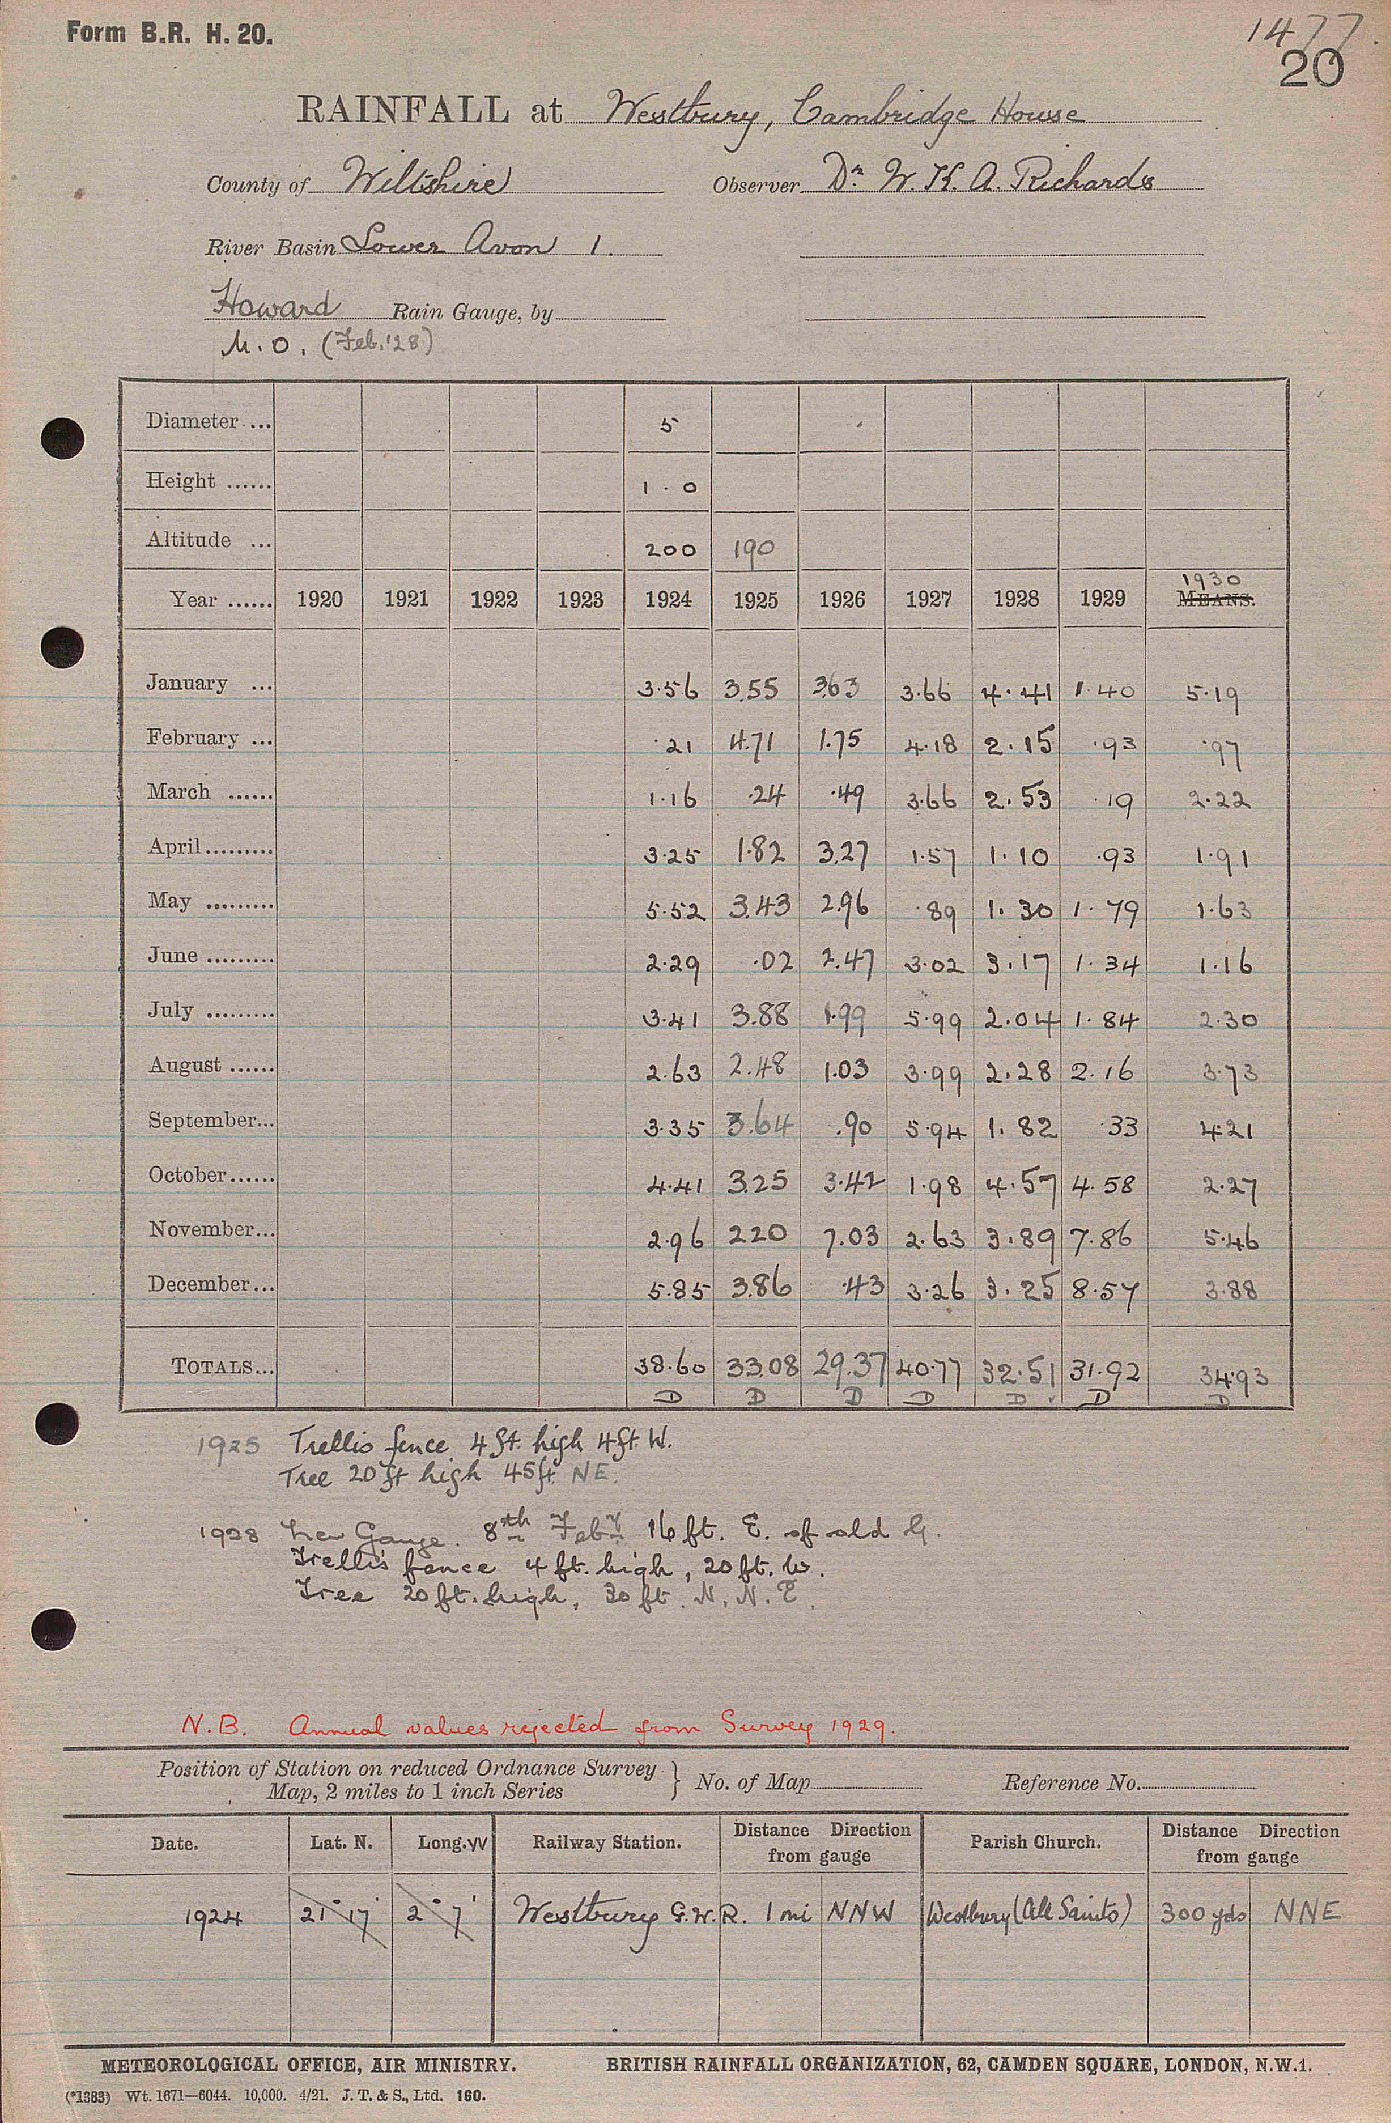 Form B.R. H. 20.
1477
20
RAINFALL at Westbury, Cambridge House
County of Wiltshire Observer Dr. W. K. A. Richards
River Basin Lower Avon 1.
Howard Rain Gauge, by
M.O. (Feb. '28)
Diameter ... 5
Height ...... 1 . 0
Altitude ... 200 190
Year ...... 1920 1921 1922 1923 1924 1925 1926 1927 1928 1929 1930 MEANS.
January ... 3.56 3.55 3.63 3.66 4.41 1.40 5.19
February ... .21 4.71 1.75 4.18 2.15 .93 .97
March ...... 1.16 .24 .49 3.66 2.53 .19 2.22
April ......... 3.25 1.82 3.27 1.57 1.10 .93 1.91
May ......... 5.52 3.43 2.96 .89 1.30 1.79 1.63
June ......... 2.29 .02 2.47 3.02 3.17 1.34 1.16
July ......... 3.41 3.88 1.99 5.99 2.04 1.84 2.30
August ...... 2.63 2.48 1.03 3.99 2.28 2.16 3.73
September... 3.35 3.64 .90 5.94 1.82 .33 4.21
October...... 4.41 3.25 3.42 1.98 4.57 4.58 2.27
November... 2.96 2.20 7.03 2.63 3.89 7.86 5.46
December... 5.85 3.86 .43 3.26 3.25 8.57 3.88
TOTALS... 38.60 33.08 29.37 40.77 32.51 31.92 34.93
D D D D D D D
1925 Trellis fence 4 ft. high 4 ft. W.
Tree 20 ft high 45 ft NE.
1928 New Gauge. 8th Feby 16 ft. E. of old G.
Trellis fence 4 ft. high, 20 ft. W.
Tree 20 ft. high, 30 ft. N.N.E.
N.B. Annual values rejected from Survey 1929.
Position of Station on reduced Ordnance Survey } No. of Map Reference No.
Map, 2 miles to 1 inch Series
Date. Lat. N. Long. W Railway Station. Distance Direction from gauge Parish Church. Distance Direction from gauge
1924 21° 17' 2° 7' Westbury G.W.R. 1 mi NNW Westbury (All Saints) 300 yds NNE
METEOROLOGICAL OFFICE, AIR MINISTRY. BRITISH RAINFALL ORGANIZATION, 62, CAMDEN SQUARE, LONDON, N.W.1.
(*1383) Wt. 1671—6044. 10,000. 4/21. J. T. & S., Ltd. 160.